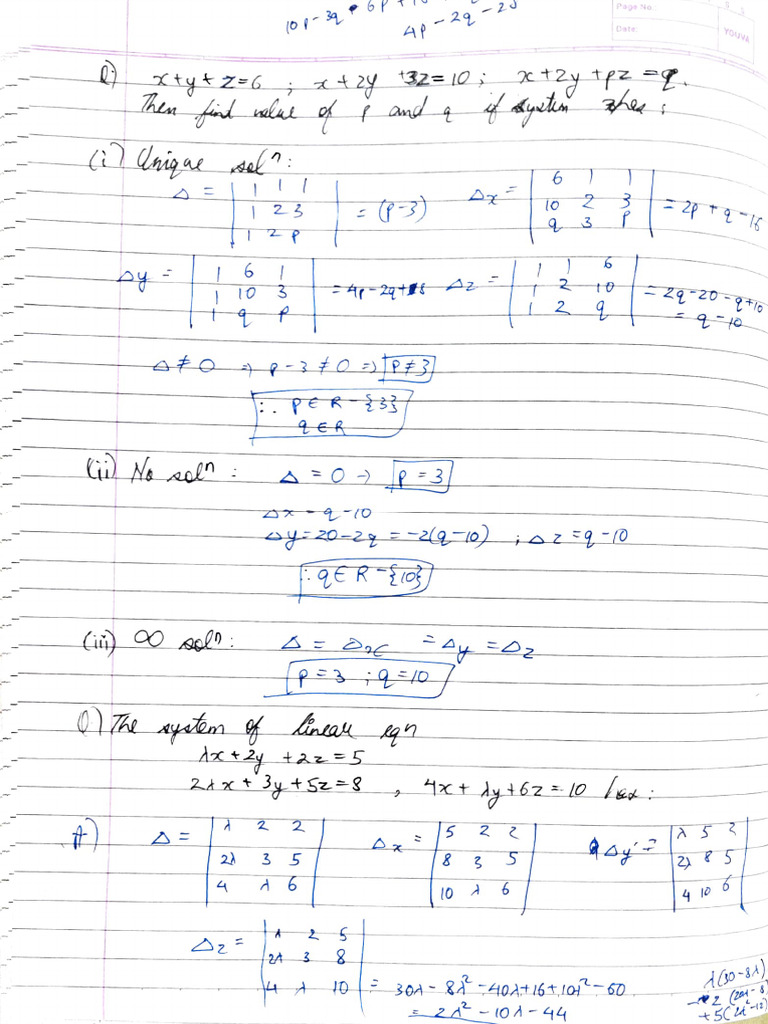 10p-3q-6p+
4p-2q-20
Page No.:
Date:
YOUVA
Q) x+y+z=6 ; x+2y+3z=10 ; x+2y+pz=q.
Then find value of p and q if system has:
(i) Unique solⁿ:
Δ = | 1 1 1 | 1 2 3 | 1 2 p | = (p-3) Δx = | 6 1 1 | 10 2 3 | q 3 p | = 2p+q-16
Δy = | 1 6 1 | 1 10 3 | 1 q p | = 4p-2q+8 Δz = | 1 1 6 | 1 2 10 | 1 2 q | = 2q-20-q+10
= q-10
Δ≠0 ⇒ p-3≠0 ⇒ p≠3
∴ p∈R-{3}
q∈R
(ii) No solⁿ: Δ=0 → p=3
Δx - q-10
Δy=20-2q=-2(q-10) ; Δz=q-10
∴ q∈R-{10}
(iii) ∞ solⁿ: Δ = Δx = Δy = Δz
p=3 ; q=10
Q) The system of linear eqn
λx+2y+2z=5
2λx+3y+5z=8 , 4x+λy+6z=10 has:
A) Δ = | λ 2 2 | 2λ 3 5 | 4 λ 6 | Δx = | 5 2 2 | 8 3 5 | 10 λ 6 | Δy = | λ 5 2 | 2λ 8 5 | 4 10 6 |
Δz = | λ 2 5 | 2λ 3 8 | 4 λ 10 | = 30λ-8λ²-40λ+16+10λ²-60
= 2λ²-10λ-44
λ(30-8λ)
-2(20λ-8
+5(2λ²-12)